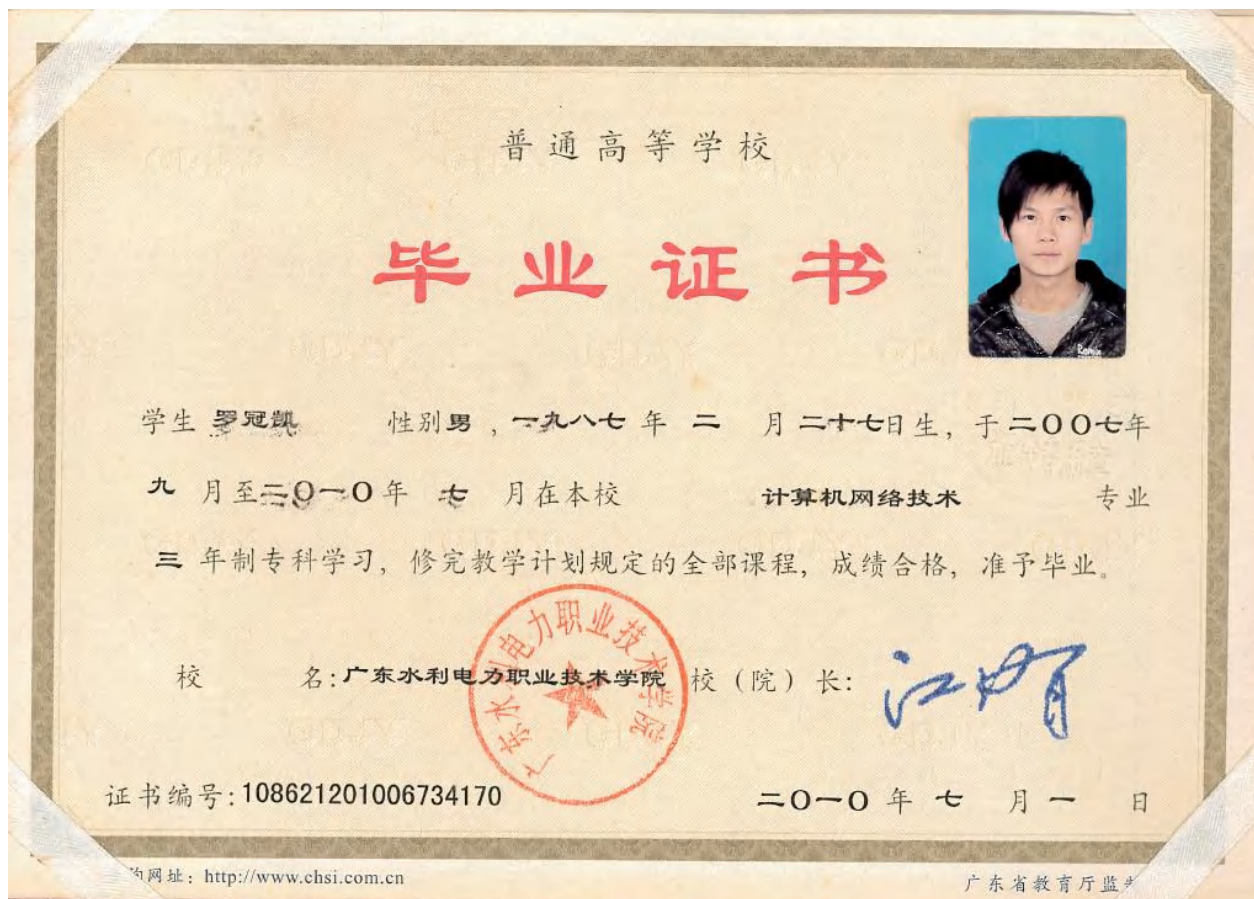 普通高等学校
毕业证书
学生 罗冠凯 性别男，一九八七年 二 月二十七日生，于二〇〇七年
九 月至二〇一〇年 七 月在本校 计算机网络技术 专业
三 年制专科学习，修完教学计划规定的全部课程，成绩合格，准予毕业。
校 名：广东水利电力职业技术学院 校（院）长：
广东水利电力职业技术学院
证书编号：108621201006734170 二〇一〇 年 七 月 一 日
网址：http://www.chsi.com.cn 广东省教育厅监